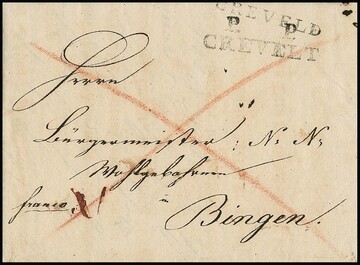 CREVELD
P. P.
CREVELT
Herrn
Bürgermeister : N: N:
Wohlgebohren
in
Bingen.
franco